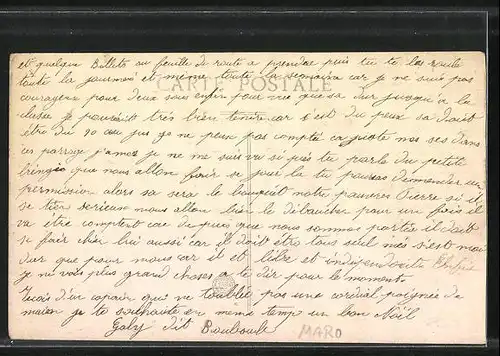 et quelque Billets ou feuille de route a prendre puis tu te les roule
toute la journée et même toute la semaine car je ne suis pas
CARTE POSTALE
courageux pour deux sous enfin pour vue que sa dur jusqu'a la
classe je pourait très bien tenir car s'est du peux sa doit
être du 90 ou jus je ne peux pas compté sa juste nos ses dans
ses parrage j'amais je ne me suis vu si puis tu parle du petit
bringue que nous allon fair se jour la tu pouras demander une
permission alors sa sera le bouquit notre pauvres Pierre si il
se tien serieux nous allon bien le débaucher pour un fois il
va être comptent car depuis que nous somme partie il doit
se fair chier lui aussi car il doit être tous seul mes s'est moi
dur que pour nous car il et libre et independant
je ne vois plus grand choses a te dir pour le moment.
Reçois d'un copain qui ne toublie pas une cordial poignée de
main je te souhaite en meme temp un bon Noël
Gaby dit Bouboule
MARO